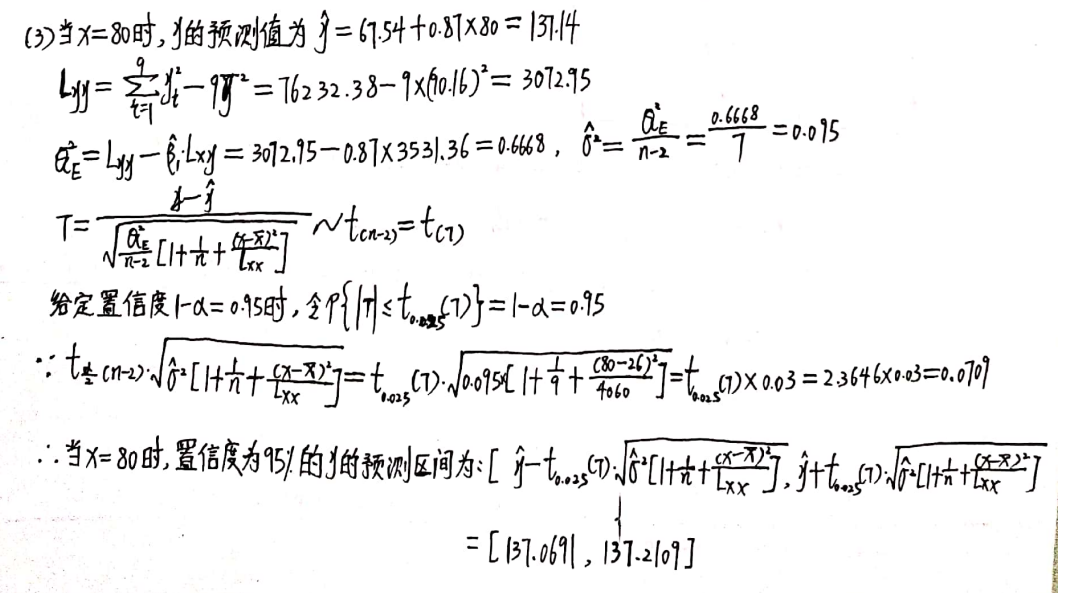 (3)当x=80时,y的预测值为 ŷ=67.54+0.87×80=137.14
Lyy=∑_{t=1}^{9} y_t²-9ȳ²=76232.38-9×(90.16)²=3072.95
Q_E²=Lyy-β̂₁·Lxy=3072.95-0.87×3531.36=0.6668, σ̂²=Q_E²/(n-2)=0.6668/7=0.095
T=(y-ŷ)/√(Q_E²/(n-2)[1+1/n+(x-x̄)²/Lxx])~t(n-2)=t(7)
给定置信度1-α=0.95时,令P{|T|≤t_{0.025}(7)}=1-α=0.95
∵t_{α/2}(n-2)·√(σ̂²[1+1/n+(x-x̄)²/Lxx])=t_{0.025}(7)·√(0.095×[1+1/9+(80-26)²/4060])=t_{0.025}(7)×0.03=2.3646×0.03=0.0709
∴当x=80时,置信度为95%的y的预测区间为:[ŷ-t_{0.025}(7)·√(σ̂²[1+1/n+(x-x̄)²/Lxx]), ŷ+t_{0.025}(7)·√(σ̂²[1+1/n+(x-x̄)²/Lxx])]
=[137.0691, 137.2109]